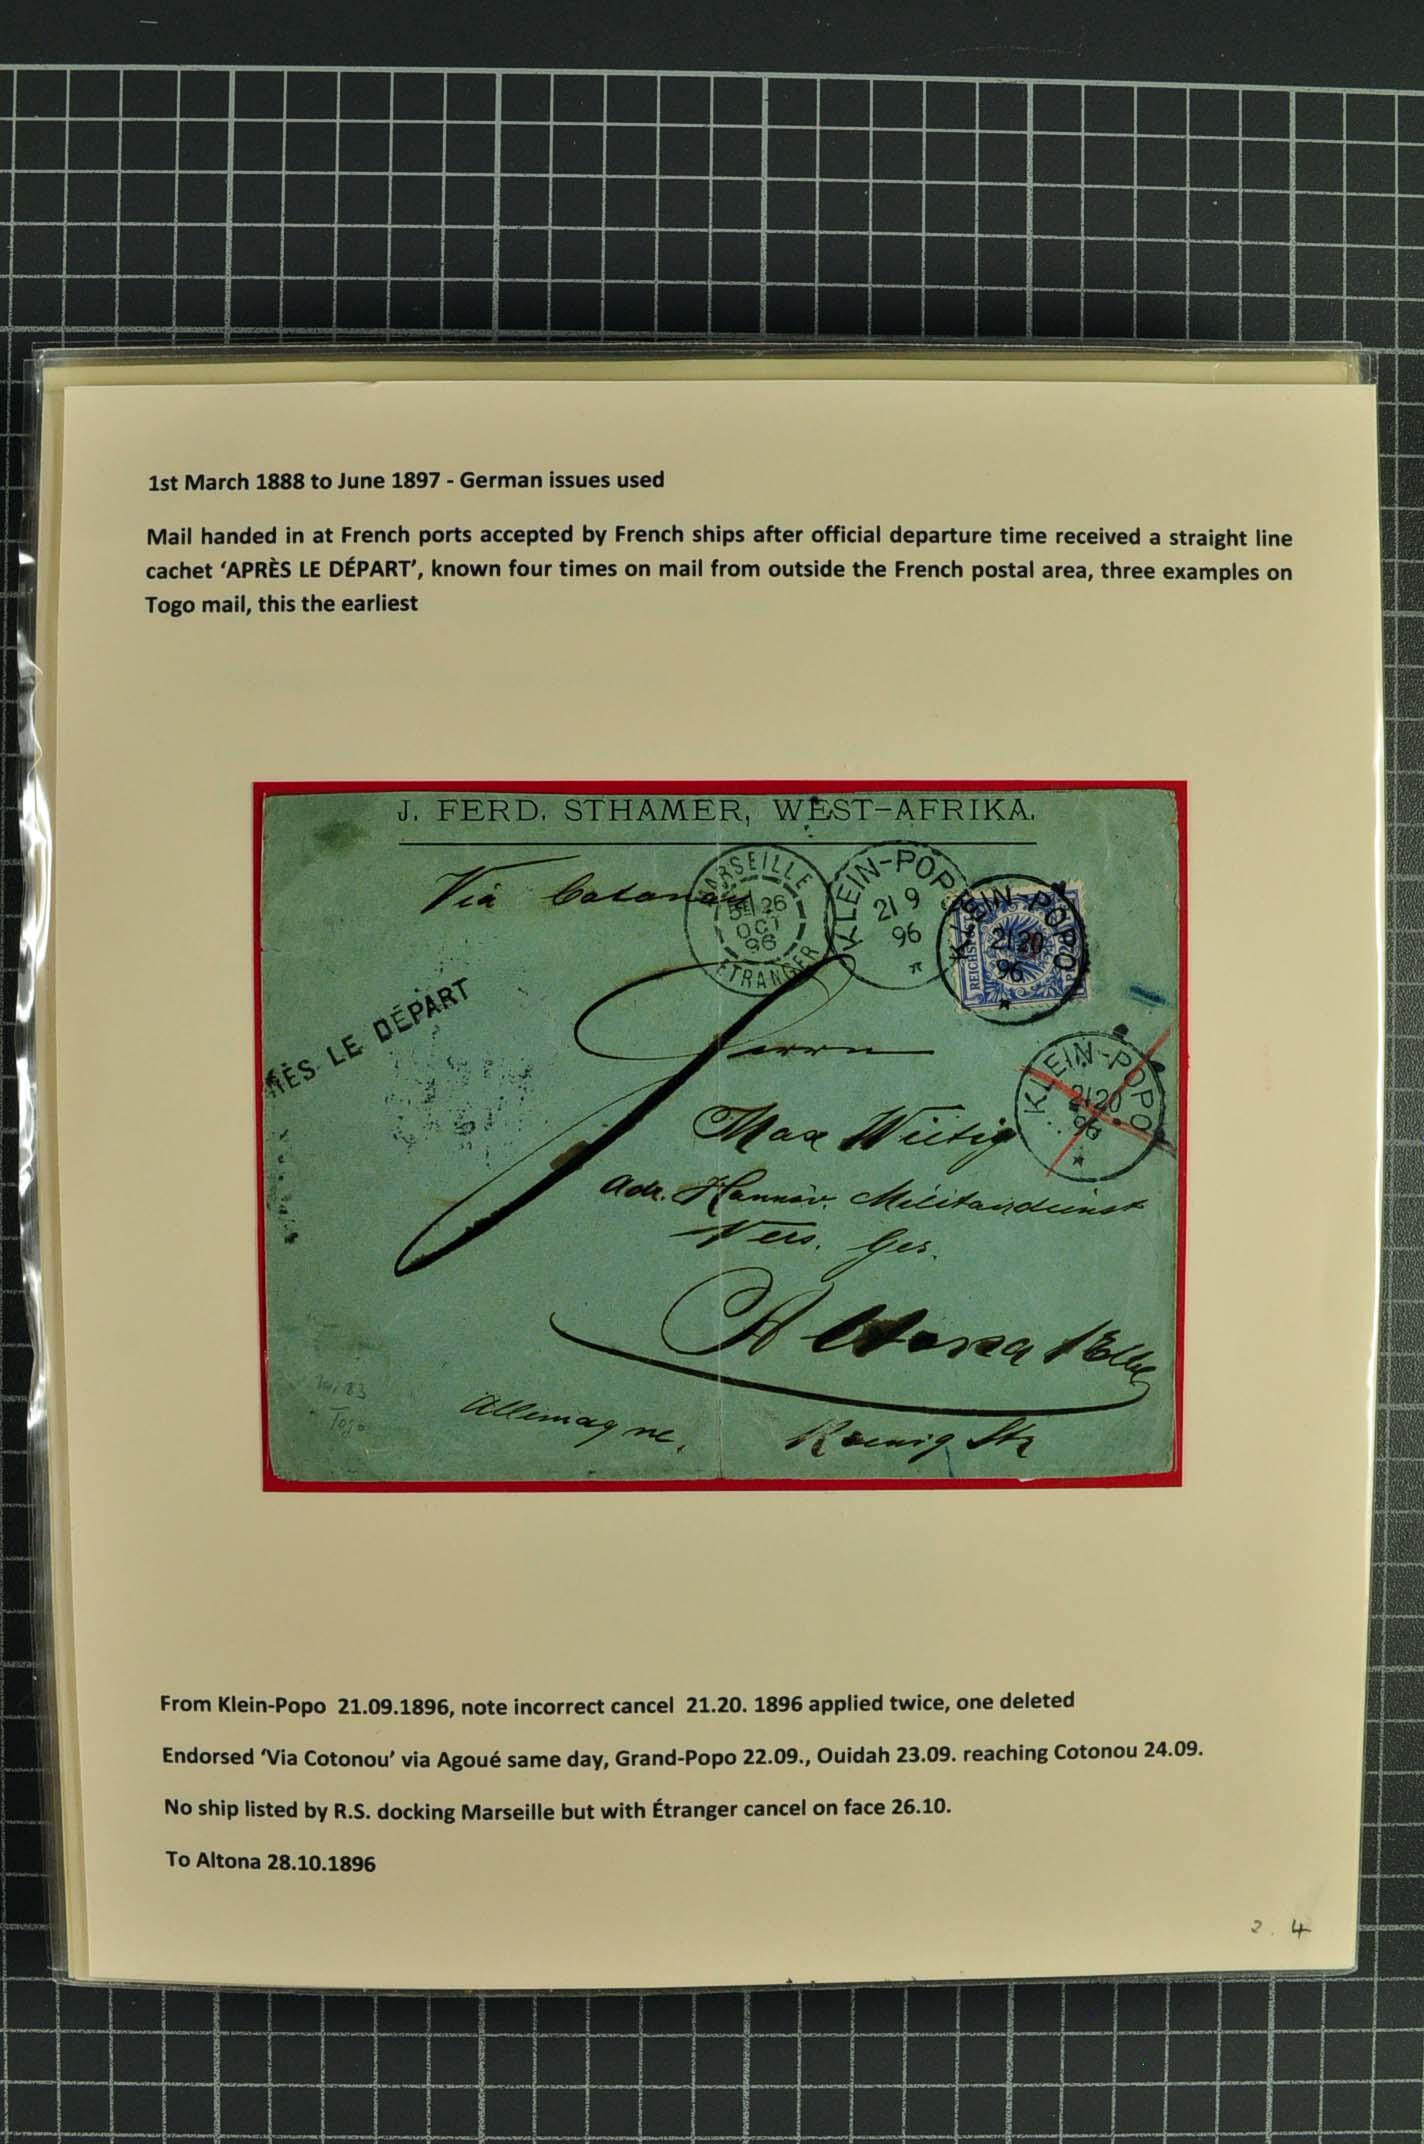 1st March 1888 to June 1897 - German issues used
Mail handed in at French ports accepted by French ships after official departure time received a straight line
cachet ‘APRÈS LE DÉPART’, known four times on mail from outside the French postal area, three examples on
Togo mail, this the earliest
J. FERD. STHAMER, WEST-AFRIKA.
Via Cotonou
MARSEILLE
26
OCT
96
ETRANGER
KLEIN-POPO
21 9
96
KLEIN-POPO
21 20
96
REICHSPOST
LE DÉPART
Herrn
KLEIN-POPO
21 20
96
Max Wittig
Adr. Hannöv. Militairdienst
Vers. Ges.
Altona / Elbe
Togo
Allemagne.
Koenig Str
From Klein-Popo 21.09.1896, note incorrect cancel 21.20. 1896 applied twice, one deleted
Endorsed ‘Via Cotonou’ via Agoué same day, Grand-Popo 22.09., Ouidah 23.09. reaching Cotonou 24.09.
No ship listed by R.S. docking Marseille but with Étranger cancel on face 26.10.
To Altona 28.10.1896
2. 4